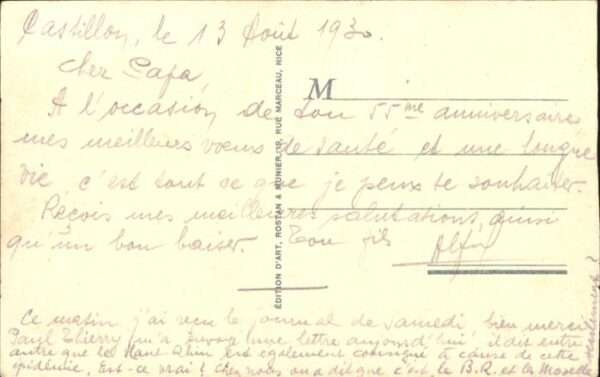 Castillon, le 13 Août 1930.
Cher Papa,
M
A l'occasion de ton 55me anniversaire
mes meilleurs voeux de santé et une longue
vie, c'est tout ce que je peux te souhaiter.
Reçois mes meilleures salutations, ainsi
qu'un bon baiser. Ton fils
ÉDITION D'ART, ROSTAN & MUNIER, RUE MARCEAU, NICE
Ce matin j'ai reçu le journal de Samedi, bien merci
Paul Thierry m'a envoyé une lettre aujourd'hui, il dit entre
autre que le Haut Rhin est également consigné à cause de cette
épidémie, Est-ce vrai? Chez nous on a dit que c'est le B.R. et la Moselle
seulement?